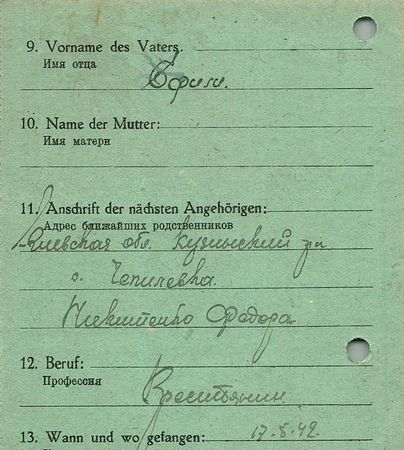 9. Vorname des Vaters.
Имя отца
Ефим.
10. Name der Mutter:
Имя матери
11. Anschrift der nächsten Angehörigen:
Адрес ближайших родственников
Киевская обл. р-н
с. Чепилевка
Никитенко Федора
12. Beruf:
Профессия
Крестьянин
13. Wann und wo gefangen: 17.8.42.